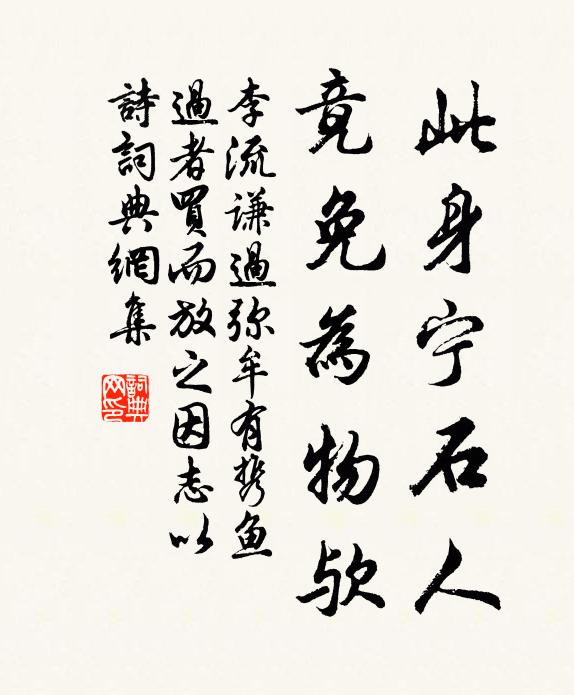 此身宁石人
竟免為物欤
李流谦過弥牟有携鱼
過者買而放之因志以
詩詞典網集
詞典网印